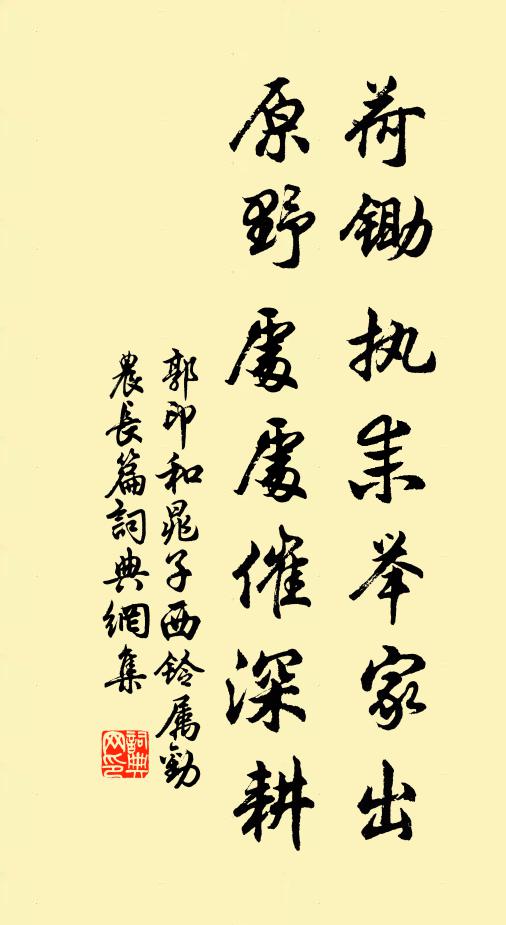 荷锄执耒举家出
原野處處催深耕
郭印和晁子西铃属勁
農長篇詞典網集
詞典网印